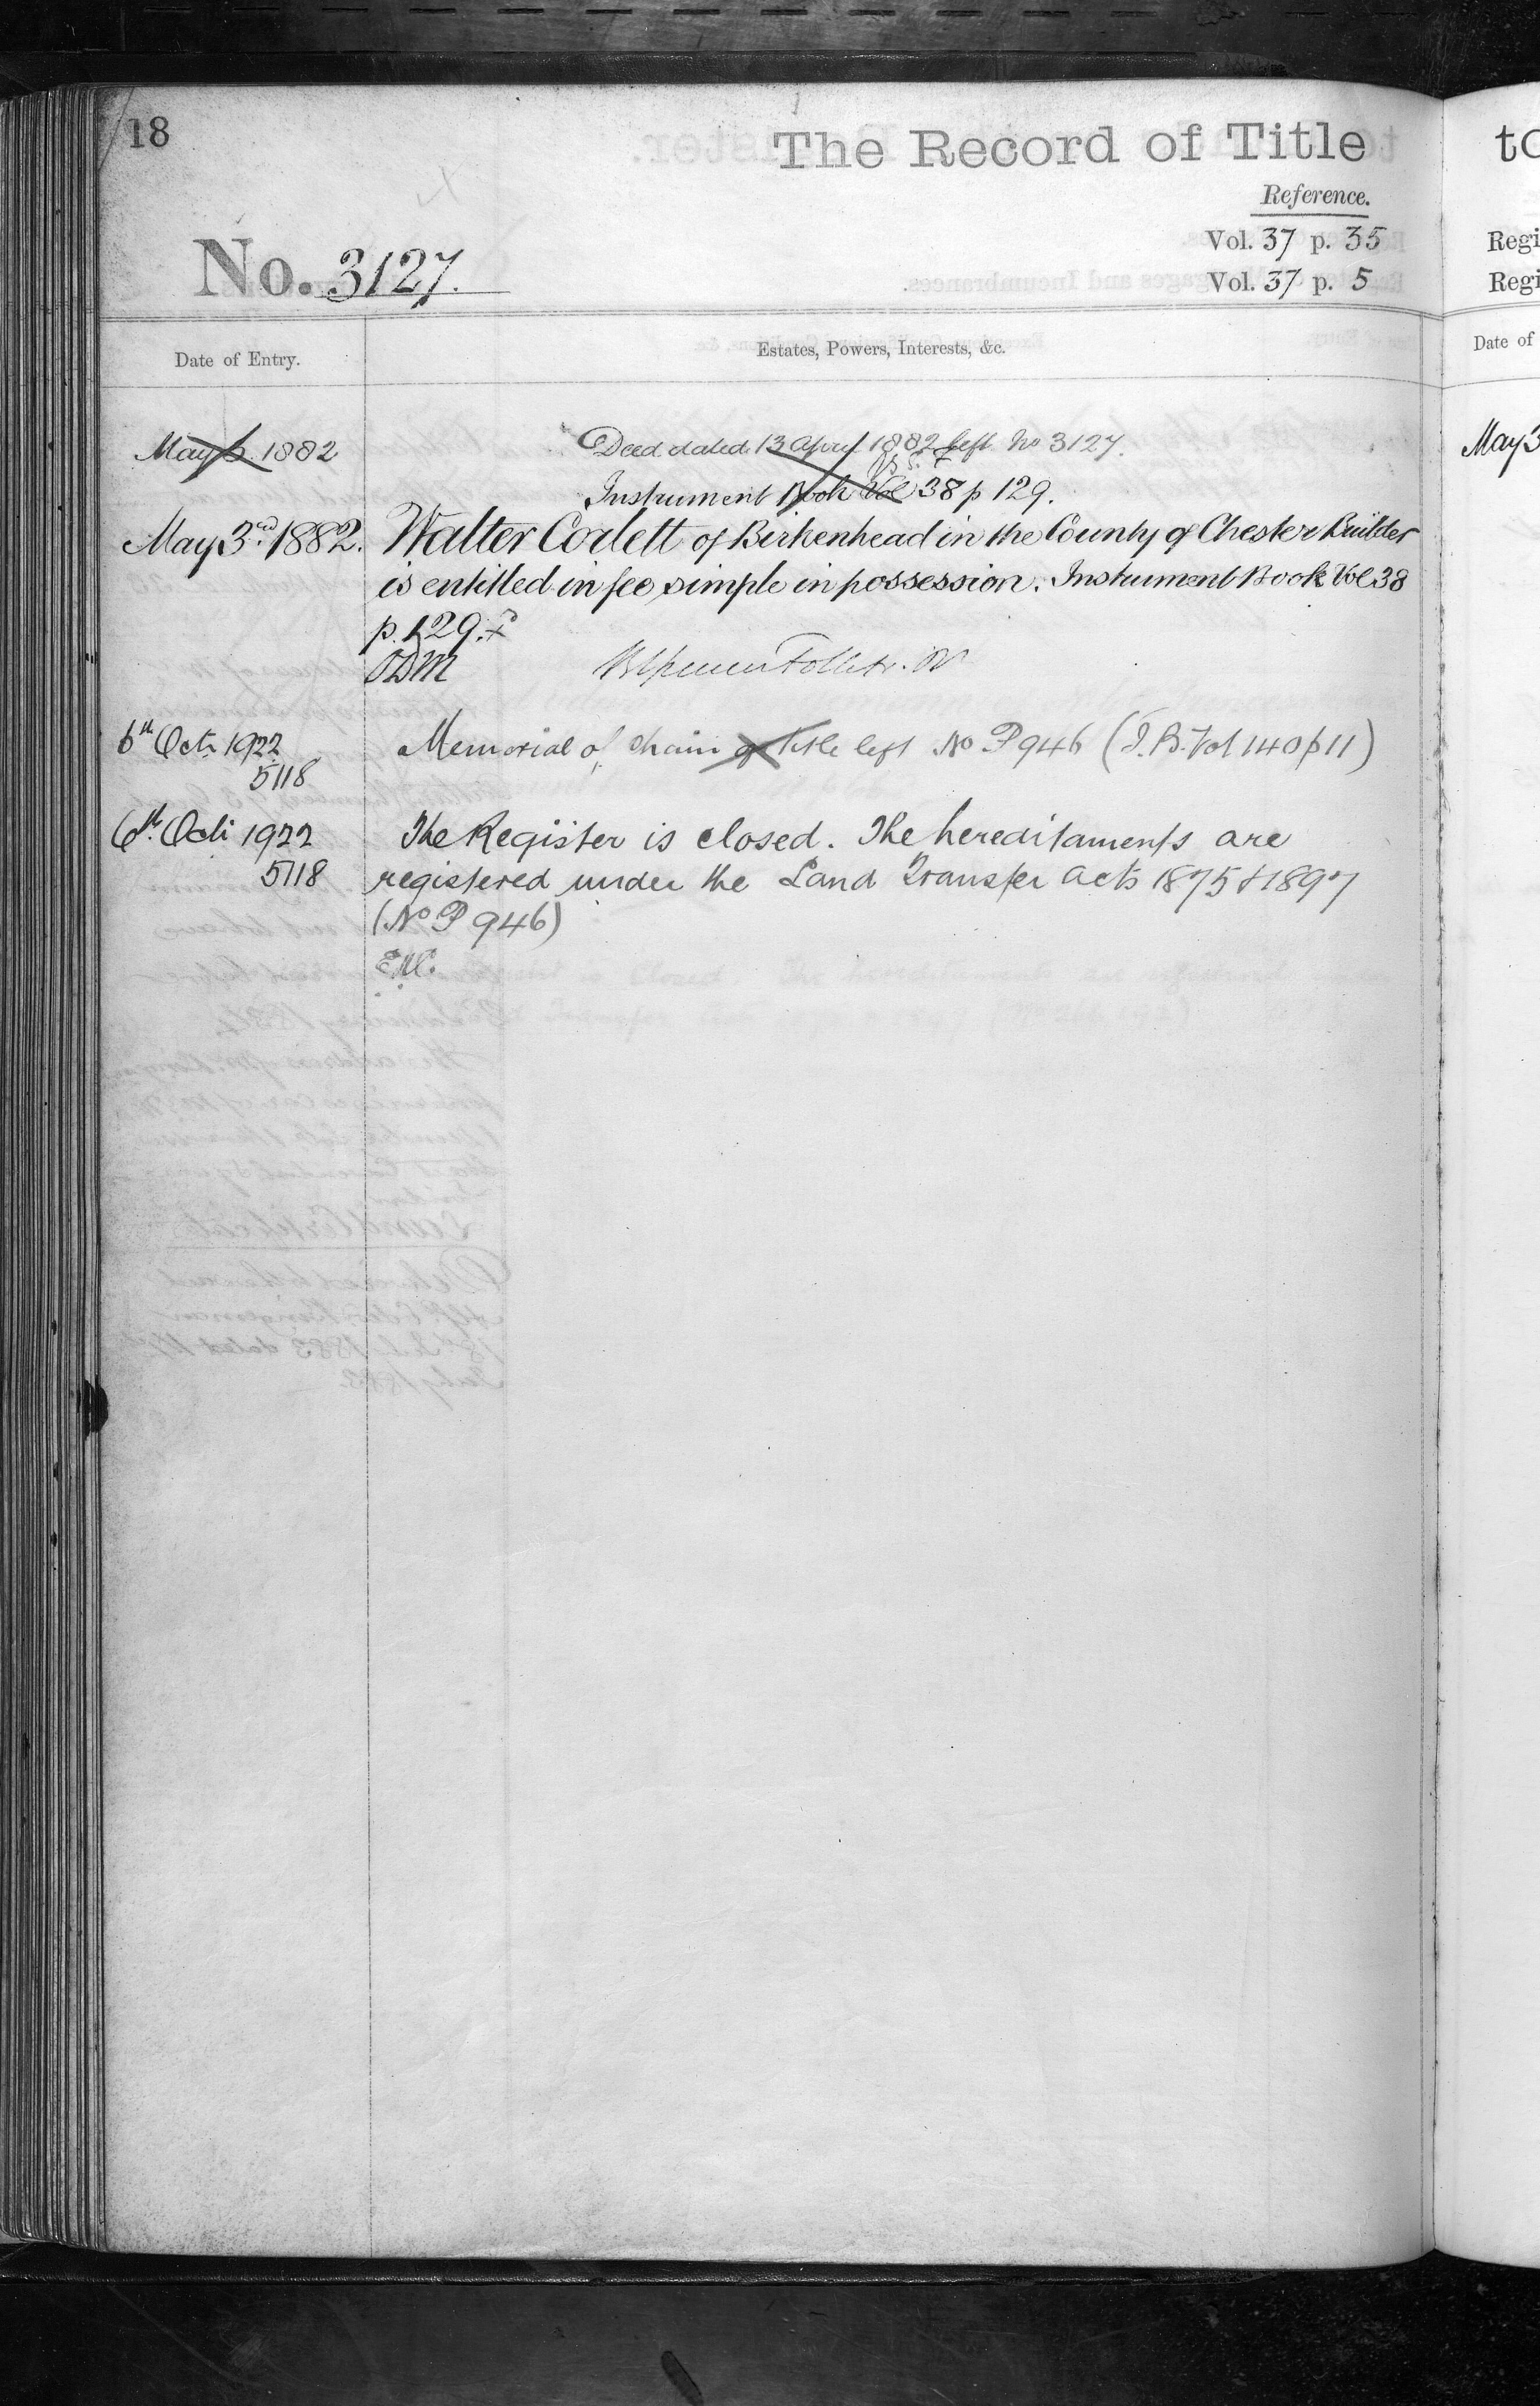 18
The Record of Title
Reference.
Vol. 37 p. 35
Vol. 37 p. 5
No. 3127.
Date of Entry.
Estates, Powers, Interests, &c.
May 3 1882
Deed dated 13 April 1882 left No 3127.
Instrument Book Vol 38 p 129.
May 3rd 1882.
Walter Corlett of Birkenhead in the County of Chester Builder
is entitled in fee simple in possession. Instrument Book Vol 38
p. 129.
6th Oct. 1922
5118
Memorial of chain of Title left No P 946 (I.B. Vol 140 p 11)
6th Oct 1922
5118
The Register is closed. The hereditaments are
registered under the Land Transfer Acts 1875 & 1897
(No P 946)
to
Regi
Regi
Date of
May 3